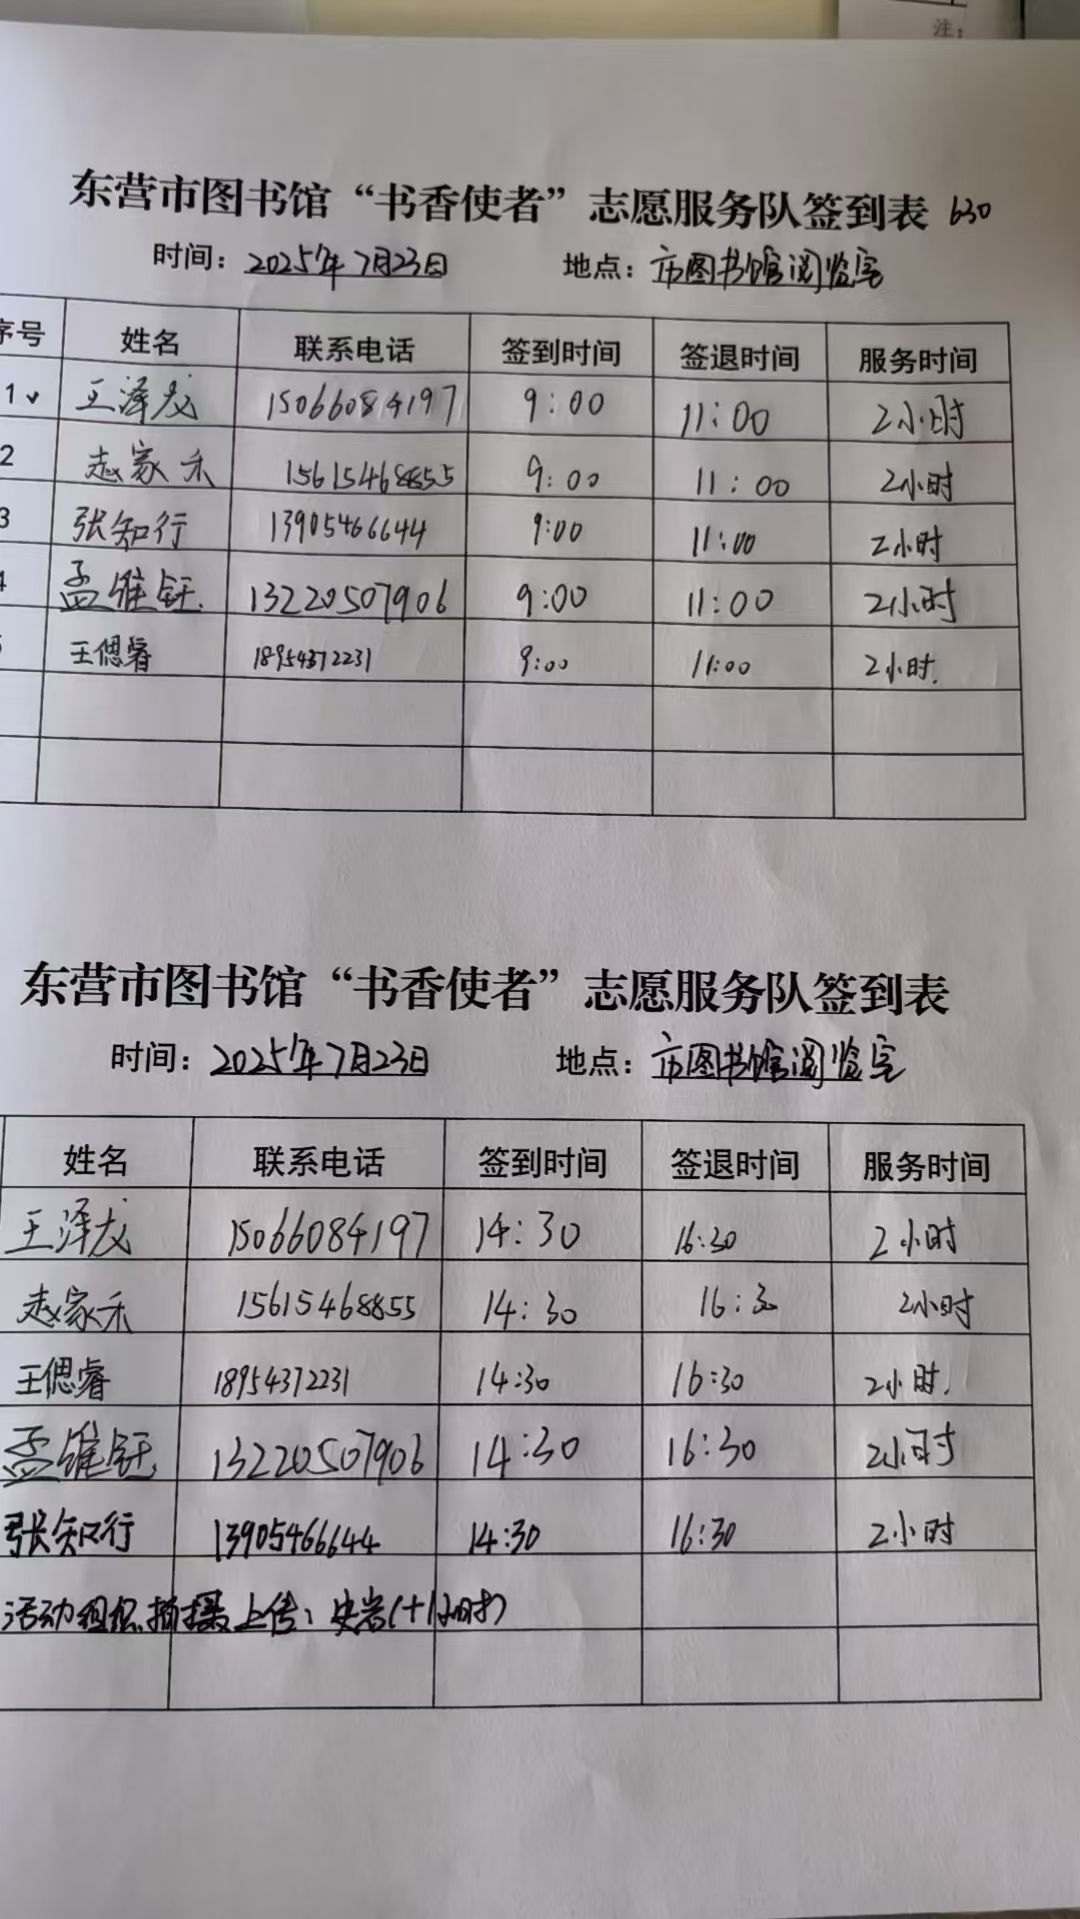 注：
东营市图书馆“书香使者”志愿服务队签到表 630
时间：2025年7月23日 地点：市图书馆阅览室
序号 姓名 联系电话 签到时间 签退时间 服务时间
1 王泽龙 15066084197 9:00 11:00 2小时
2 赵家禾 15615468855 9:00 11:00 2小时
3 张知行 13905466644 9:00 11:00 2小时
4 孟维钰 13220507906 9:00 11:00 2小时
王偲睿 18954372231 9:00 11:00 2小时.
东营市图书馆“书香使者”志愿服务队签到表
时间：2025年7月23日 地点：市图书馆阅览室
姓名 联系电话 签到时间 签退时间 服务时间
王泽龙 15066084197 14:30 16:30 2小时
赵家禾 15615468855 14:30 16:30 2小时
王偲睿 18954372231 14:30 16:30 2小时.
孟维钰 13220507906 14:30 16:30 2小时
张知行 13905466644 14:30 16:30 2小时
活动组织、拍摄、上传：史岩(+1小时)